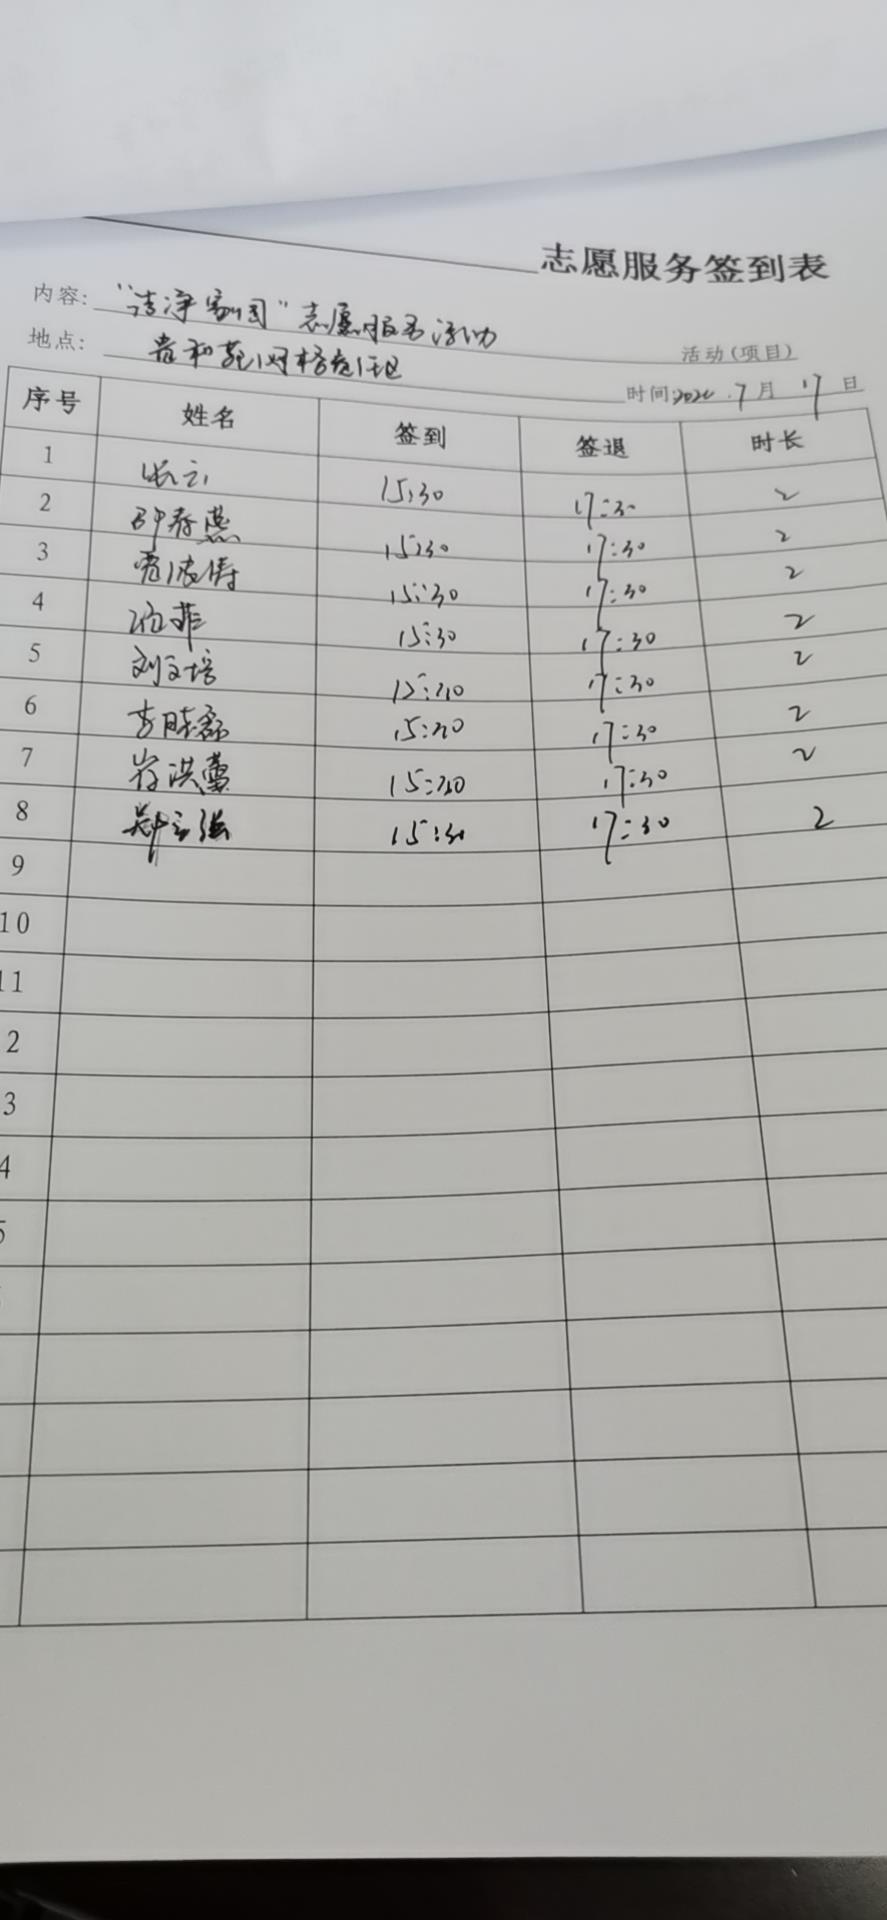 志愿服务签到表
内容："洁净家园"志愿服务活动
活动(项目)
地点：
时间: 7月17日
序号 姓名 签到 签退 时长
1 张云 15:30 17:30 2
2 邵春燕 15:30 17:30 2
3 15:30 17:30 2
4 菲 15:30 17:30 2
5 刘文培 15:30 17:30 2
6 李晓磊 15:30 17:30 2
7 洪蕾 15:30 17:30 2
8 强 15:30 17:30 2
9
10
11
2
3
4
5